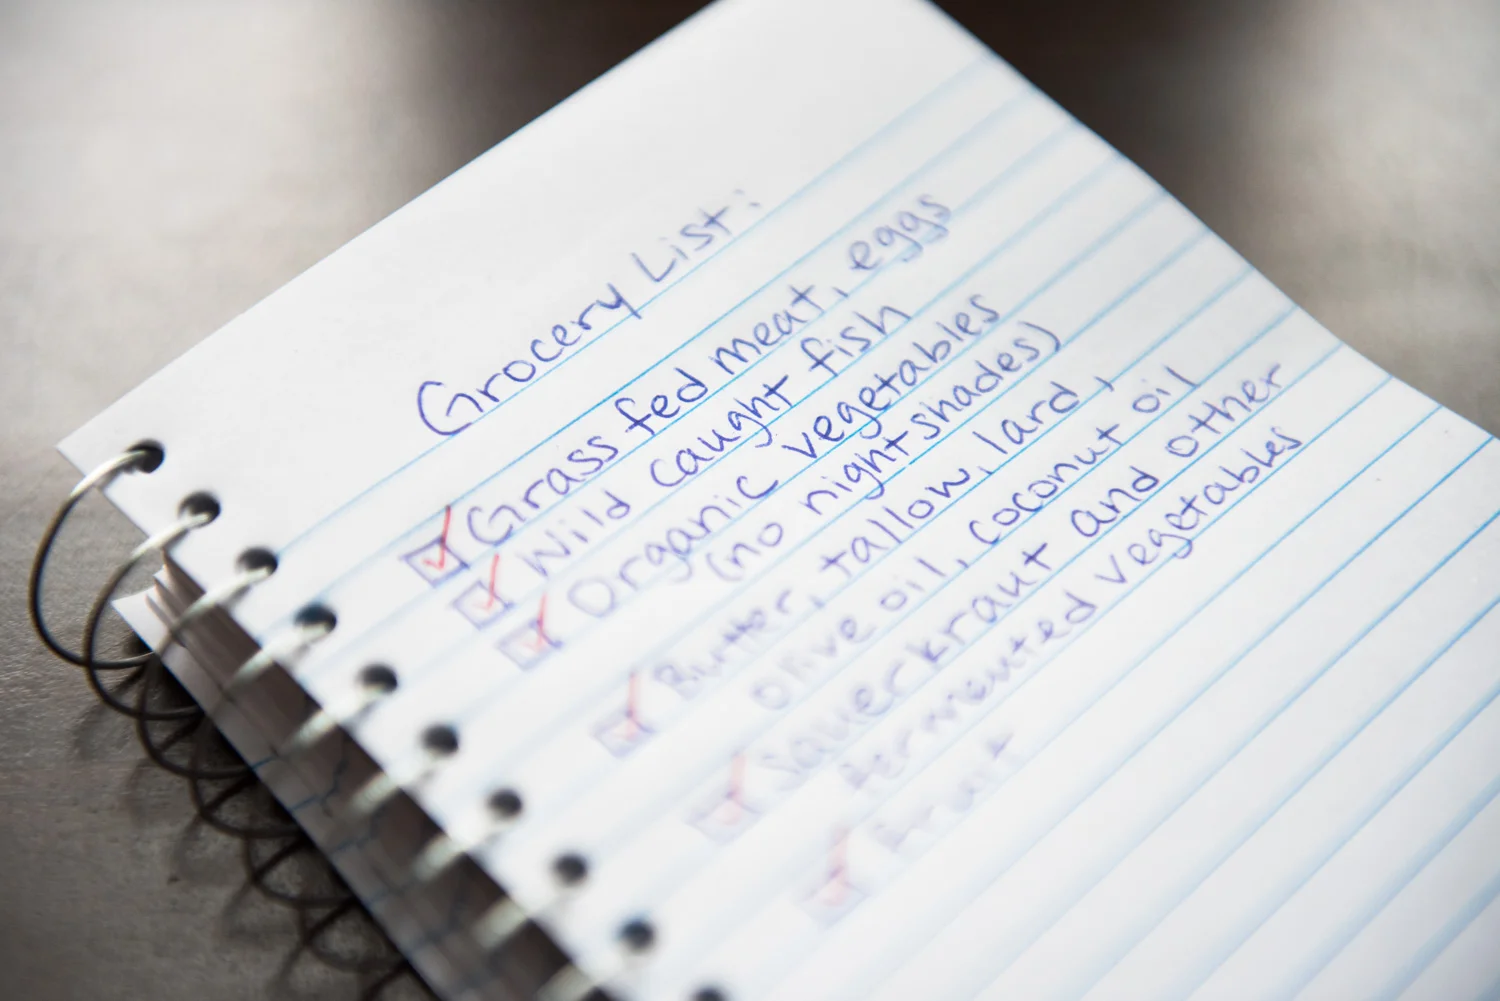 Grocery List:
Grass fed meat, eggs
Wild caught fish
Organic vegetables
(no nightshades)
Butter, tallow, lard,
Olive oil, coconut oil
Sauerkraut and other
fermented vegetables
Fruit